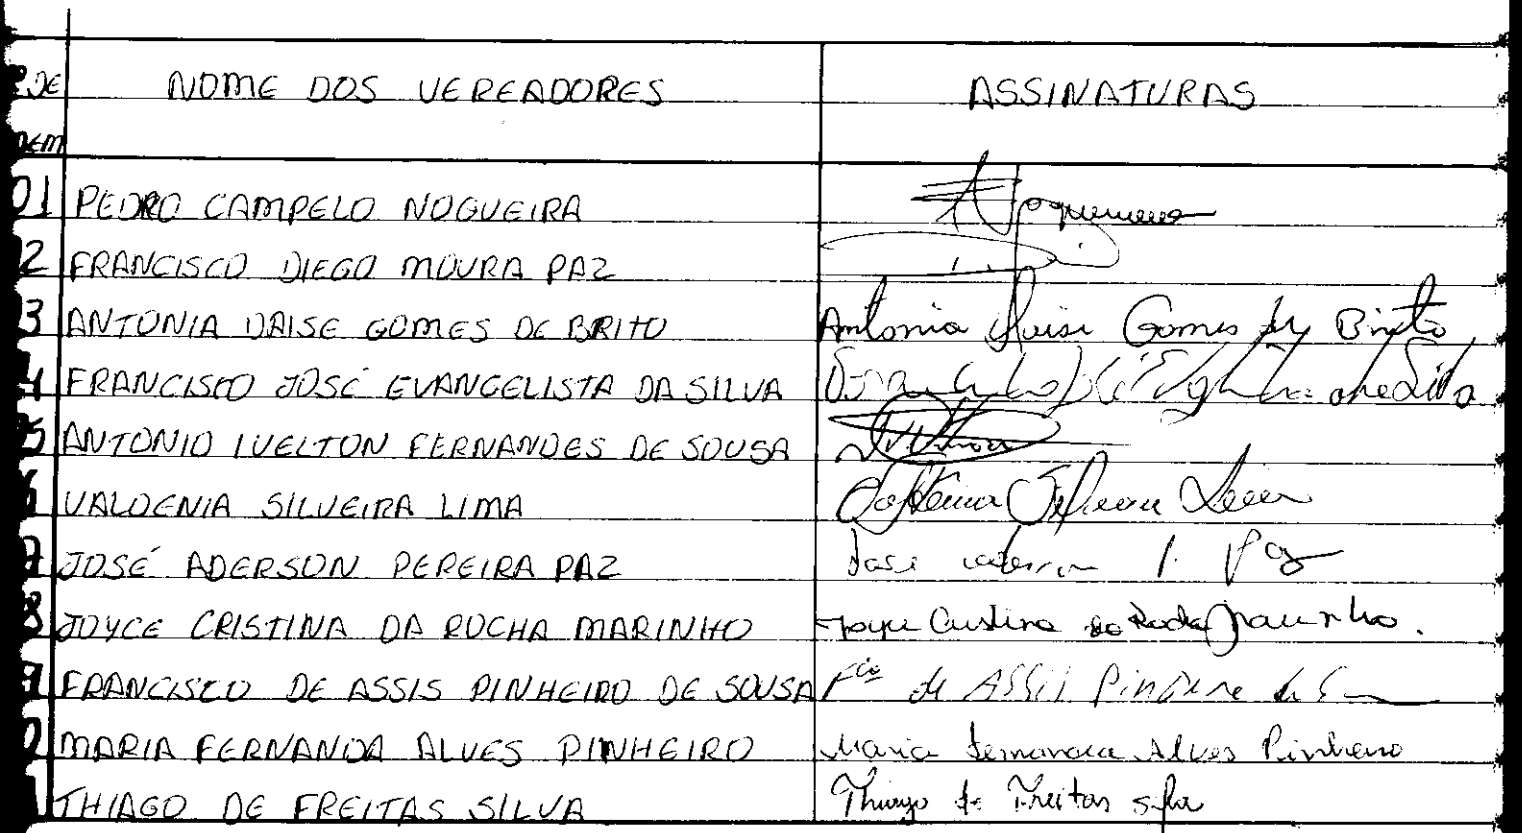 DE NOME DOS VEREADORES ASSINATURAS
01 PEDRO CAMPELO NOGUEIRA
2 FRANCISCO DIEGO MOURA PAZ
3 ANTONIA DAISE GOMES DE BRITO Antonia Daise Gomes de Brito
4 FRANCISCO JOSÉ EVANGELISTA DA SILVA
5 ANTONIO IVELTON FERNANDES DE SOUSA
6 VALDENIA SILVEIRA LIMA
7 JOSÉ ADERSON PEREIRA PAZ José Aderson P. Paz
8 JOYCE CRISTINA DA ROCHA MARINHO Joyce Cristina da Rocha Marinho.
9 FRANCISCO DE ASSIS PINHEIRO DE SOUSA Fco de ASSIS Pinheiro de
0 MARIA FERNANDA ALVES PINHEIRO Maria Fernanda Alves Pinheiro
THIAGO DE FREITAS SILVA Thiago de Freitas Silva